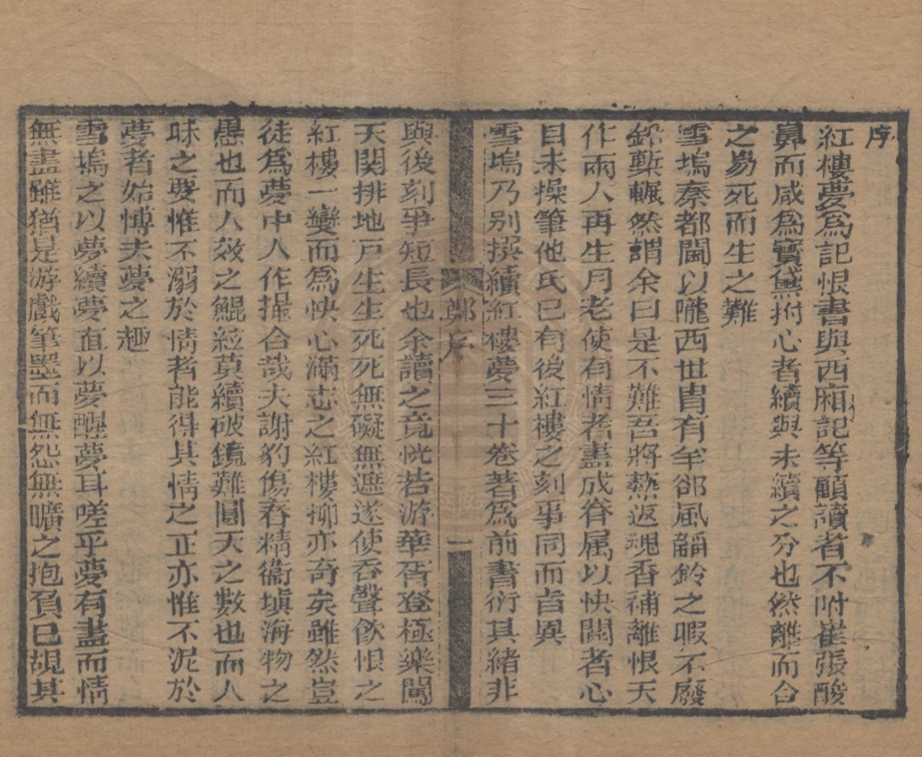 序
紅樓夢爲記恨書與西廂記等顧讀者不咐崔張酸
鼻而咸爲寶黛拊心者續與未續之分也然離而合
之易死而生之難
雪塢秦都閫以隴西世冑有羊郤風韻鈴之暇不廢
鉛槧囅然謂余曰是不難吾將爇返魂香補離恨天
作兩人再生月老使有情者盡成眷属以快閱者心
目未操筆他氏已有後紅樓之刻事同而旨異
雪塢乃別撰續紅樓夢三十卷著爲前書衍其緒非
鄭序
一
與後刻爭短長也余讀之竟恍若游華胥登極樂闖
天關排地戸生生死死無礙無遮遂使吞聲飲恨之
紅樓一變而爲快心滿志之紅樓抑亦奇矣雖然豈
徒爲夢中人作撮合哉夫謝豹傷春精衞塡海物之
愚也而人效之鯤絃莫續破鏡難圓天之數也而人
昧之要惟不溺於情者能得其情之正亦惟不泥於
夢者始博夫夢之趣
雪塢之以夢續夢直以夢醒夢耳嗟乎夢有盡而情
無盡雖猶是游戲筆墨而無怨無曠之抱負已覘其